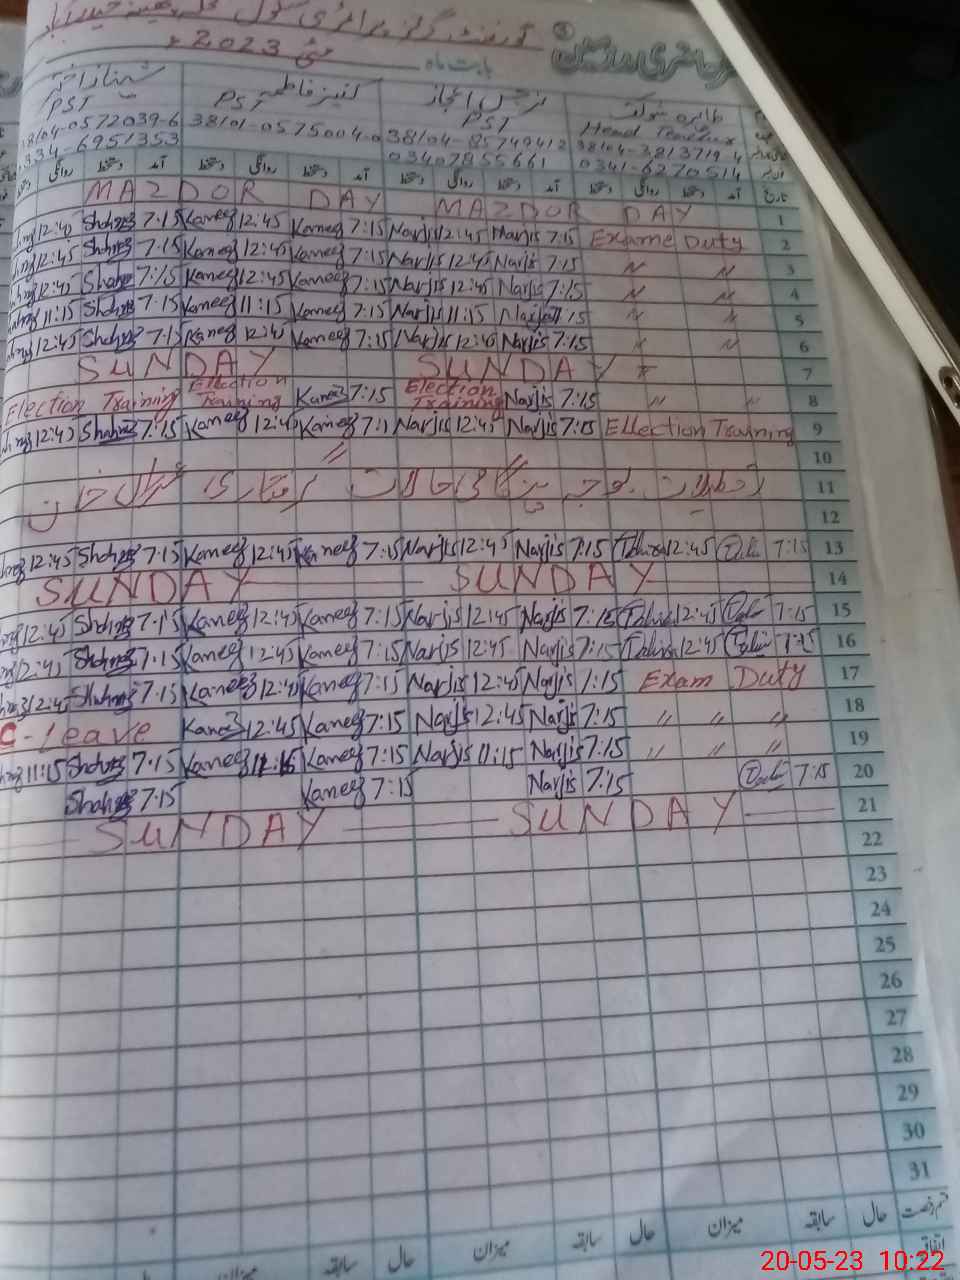 گورنمنٹ گرلز پرائمری سکول
مئی 2023ء
بابت ماہ
طاہرہ شوکت
Head Teacher
38104-3813719 4
0341-6270514
نرجس اعجاز
PST
38104-8574941 2
03407855661
کنیز فاطمہ
PST
38101-0575004-0
شہناز اختر
PST
38104-0572039-6
334-6951353
تاریخ آمد دستخط روانگی دستخط آمد دستخط روانگی دستخط آمد دستخط روانگی دستخط آمد دستخط روانگی
MAZDOR DAY MAZDOR DAY 1
12:45 Shahnaz 7:15 Kaneez 12:45 Kaneez 7:15 Narjis 12:45 Narjis 7:15 Exame Duty 2
12:45 Shahnaz 7:15 Kaneez 12:45 Kaneez 7:15 Narjis 12:45 Narjis 7:15 〃 〃 3
12:45 Shahnaz 7:15 Kaneez 12:45 Kaneez 7:15 Narjis 12:45 Narjis 7:15 〃 〃 4
11:15 Shahnaz 7:15 Kaneez 11:15 Kaneez 7:15 Narjis 11:15 Narjis 7:15 〃 〃 5
12:45 Shahnaz 7:15 Kaneez 12:45 Kaneez 7:15 Narjis 12:45 Narjis 7:15 〃 〃 6
SUNDAY SUNDAY 〃 7
Election Training Ellection Training Kaneez 7:15 Election Training Narjis 7:15 〃 〃 8
12:45 Shahnaz 7:15 Kaneez 12:45 Kaneez 7:1 Narjis 12:45 Narjis 7:15 Ellection Training 9
10
تعطیلات بوجہ ہنگامی حالات گرفتاری عمران خان 11
12
12:45 Shahnaz 7:15 Kaneez 12:45 Kaneez 7:15 Narjis 12:45 Narjis 7:15 Tahira 12:45 Tahira 7:15 13
SUNDAY SUNDAY 14
12:45 Shahnaz 7:15 Kaneez 12:45 Kaneez 7:15 Narjis 12:45 Narjis 7:15 Tahira 12:45 Tahira 7:15 15
12:45 Shahnaz 7:15 Kaneez 12:45 Kaneez 7:15 Narjis 12:45 Narjis 7:15 Tahira 12:45 Tahira 7:15 16
12:45 Shahnaz 7:15 Kaneez 12:45 Kaneez 7:15 Narjis 12:45 Narjis 7:15 Exam Duty 17
C-Leave Kaneez 12:45 Kaneez 7:15 Narjis 12:45 Narjis 7:15 〃 〃 〃 18
11:15 Shahnaz 7:15 Kaneez 11:15 Kaneez 7:15 Narjis 11:15 Narjis 7:15 〃 〃 〃 19
Shahnaz 7:15 Kaneez 7:15 Narjis 7:15 Tahira 7:15 20
SUNDAY SUNDAY 21
22
23
24
25
26
27
28
29
30
31
قسم رخصت حال سابقہ میزان حال سابقہ میزان حال سابقہ
اتفاقیہ
20-05-23 10:22